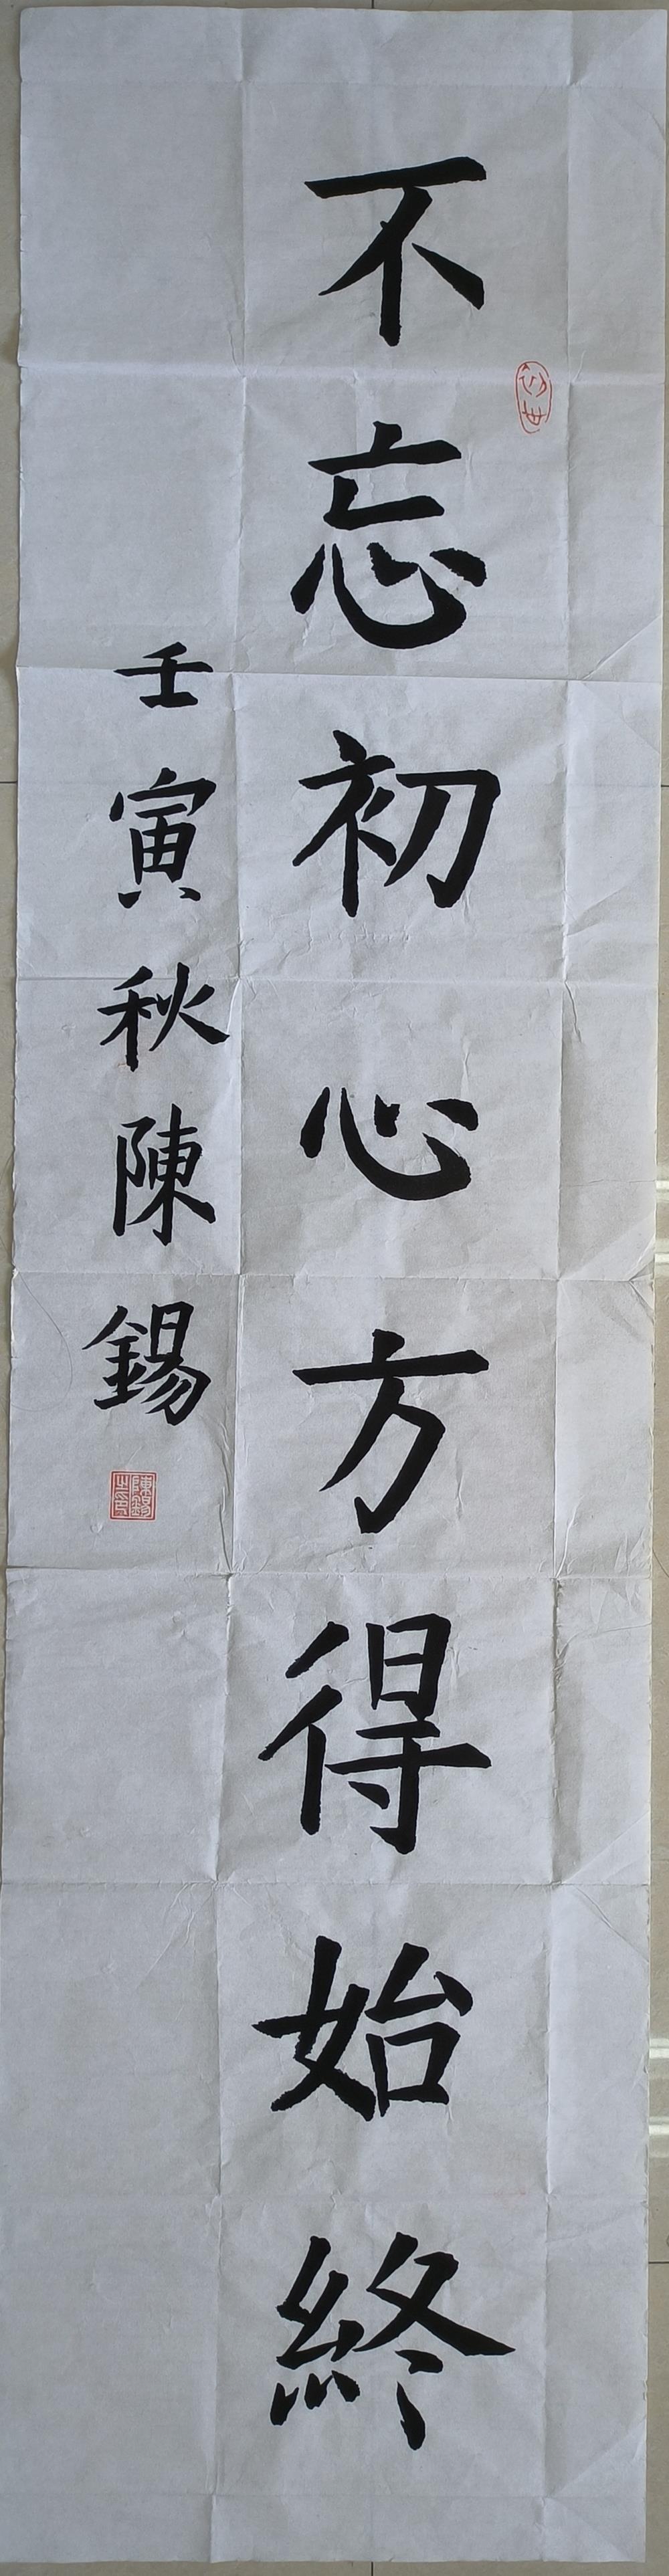 不忘初心方得始終
壬寅秋陳錫
陳錫之印